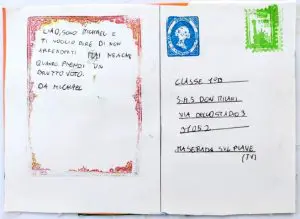 CIAO, SONO MICHAEL E
TI VOGLIO DIRE DI NON
ARRENDERTI MAI NEACHE
QUANDO PRENDI UN
BRUTTO VOTO!
DA MICHAEL
CLASSE 1ªD
S.M.S DON MILANI
VIA DELLO STADIO 3
31052
MASERADA SUL PIAVE
(TV)